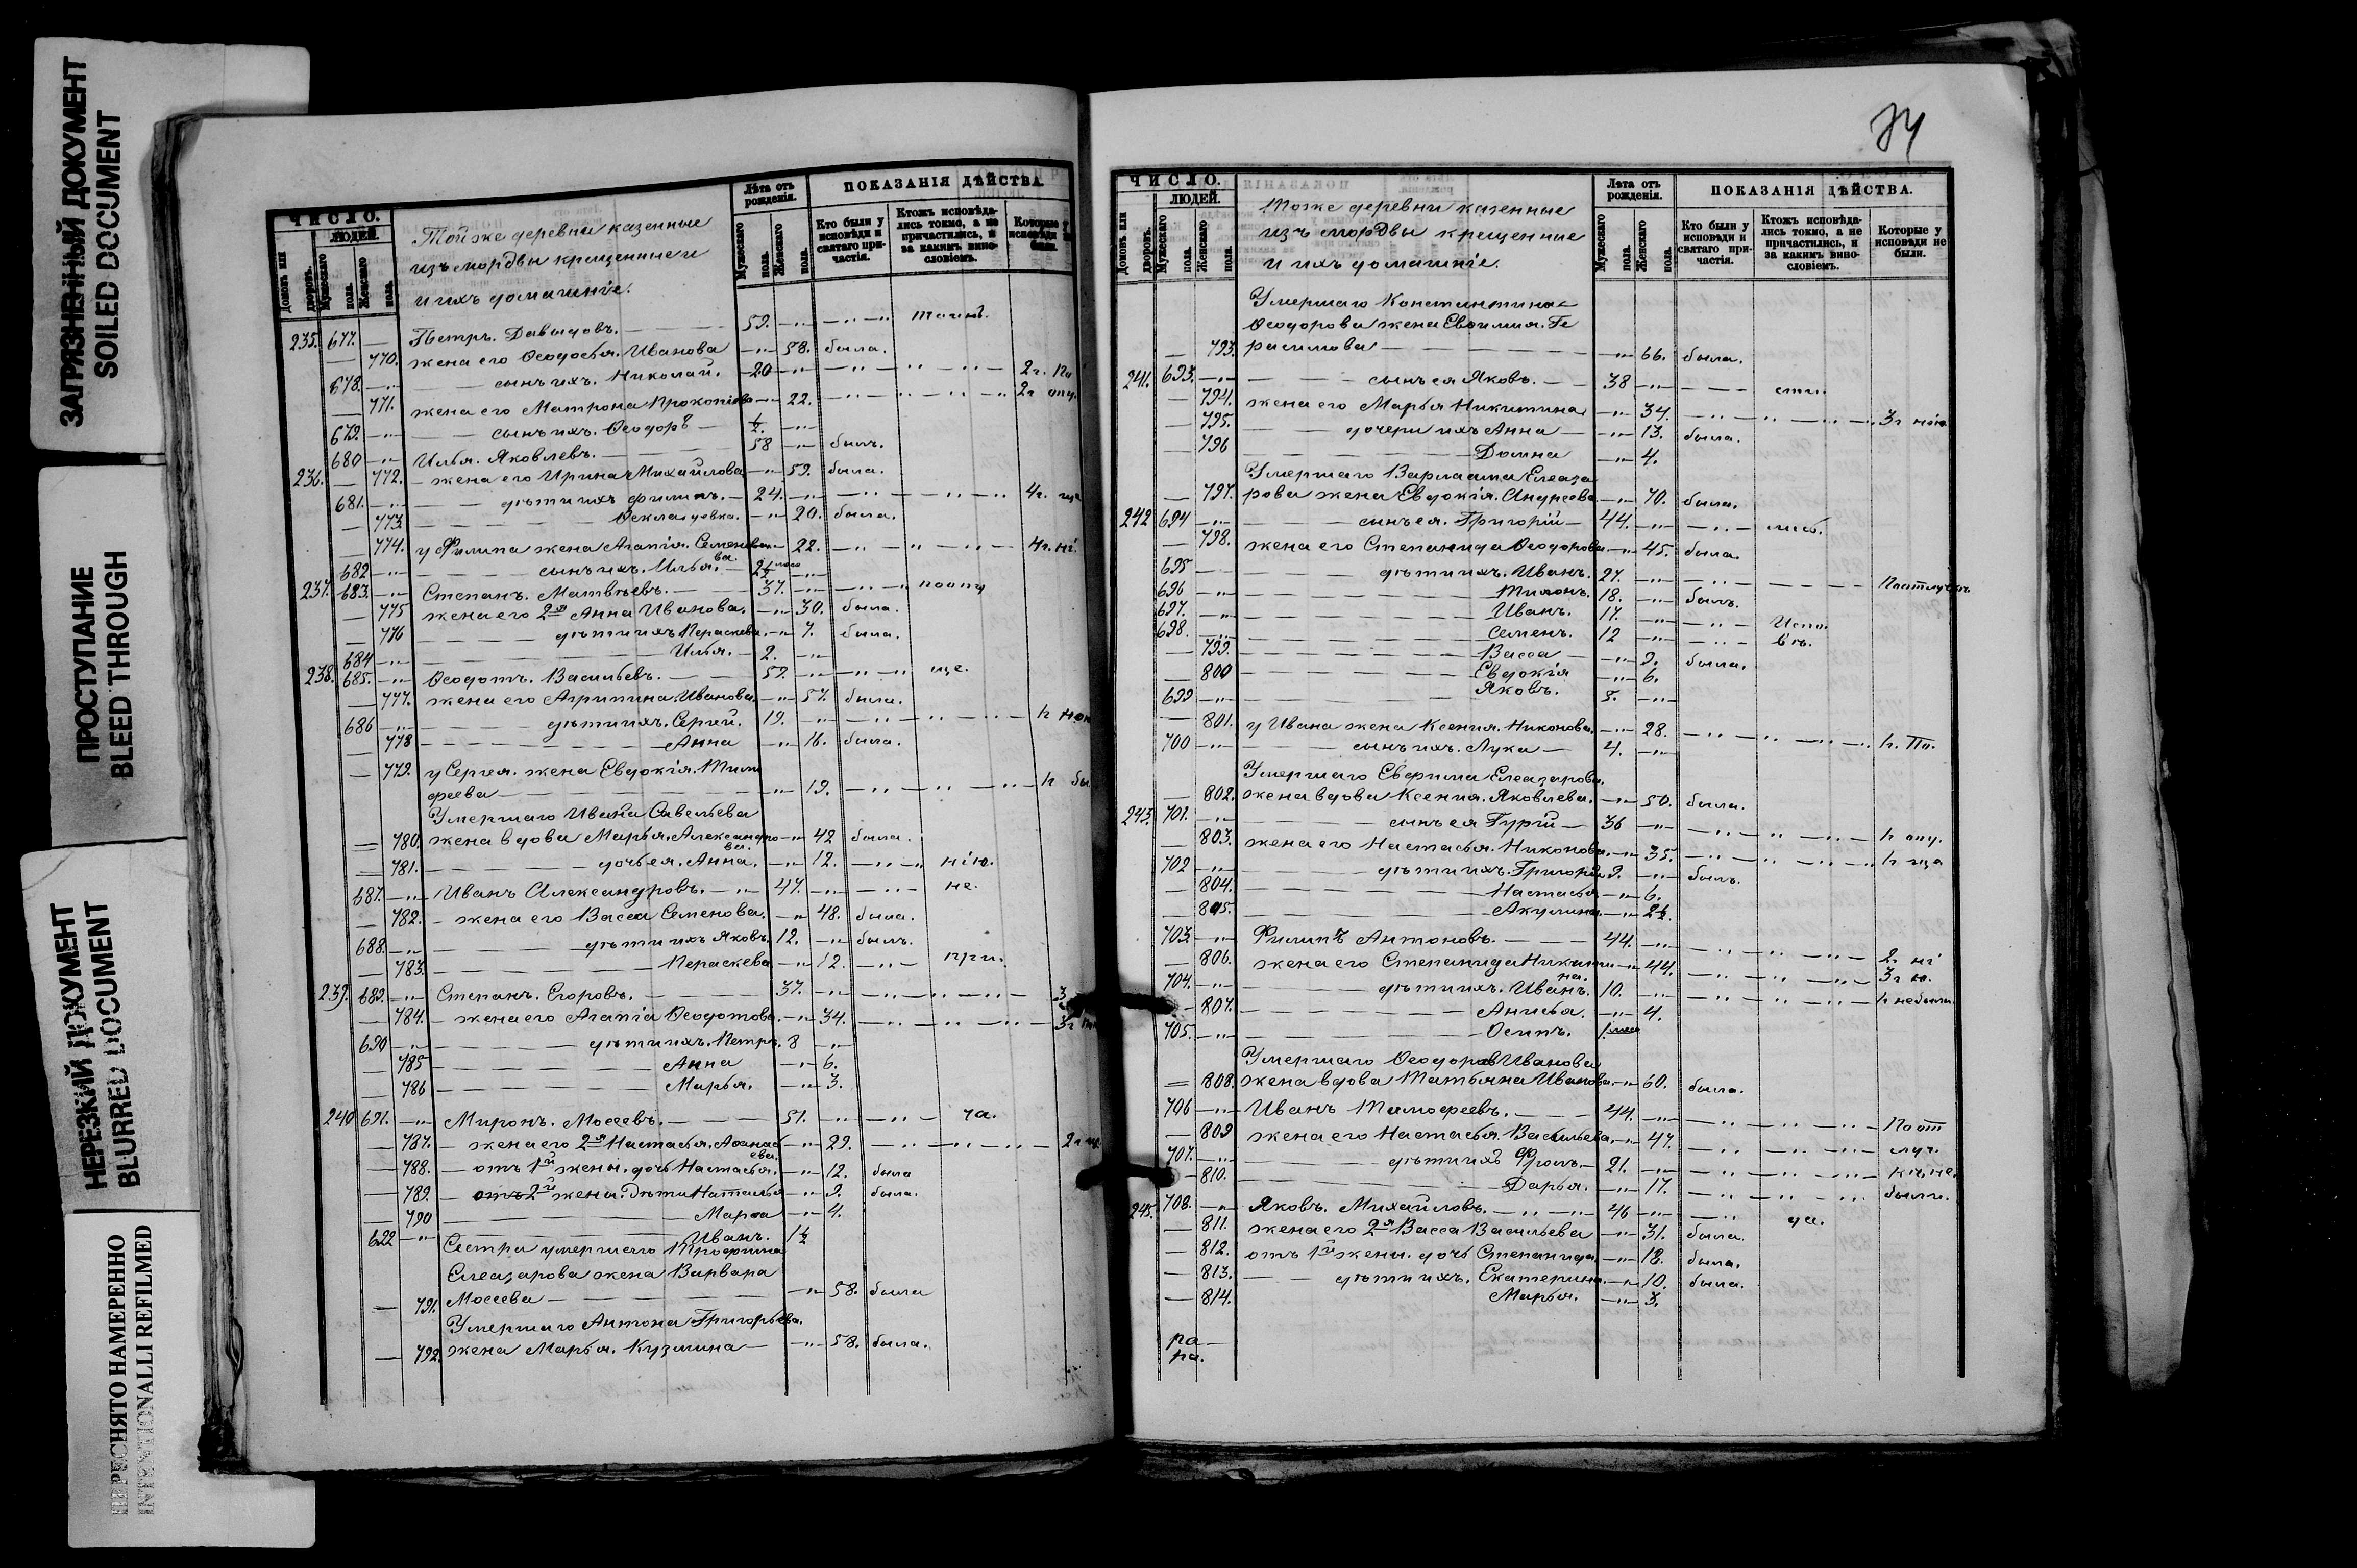 ЗАГРЯЗНЕННЫЙ ДОКУМЕНТ
SOILED DOCUMENT
ПРОСТУПАНИЕ
BLEED THROUGH
НЕРЕЗКИЙ ДОКУМЕНТ
BLURRED DOCUMENT
ПЕРЕСНЯТО НАМЕРЕННО
INTENTIONALLI REFILMED
ЧИСЛО.
ЛЮДЕЙ.
Домовъ или дворовъ.
Мужескаго пола.
Женскаго пола.
Тойже деревни казенные
изъ мордвы крещенные и
и ихъ домашніе.
Лѣта отъ рожденія.
Мужескаго пола.
Женскаго пола.
ПОКАЗАНІЯ ДѢЙСТВА
Кто были у исповѣди и святаго причастія.
Ктожъ исповѣдались токмо, а не причастились, и за какимъ винословіемъ.
Которые у исповѣди были.
235. 677. — Петръ. Давыдовъ. 59.
770. жена его Ѳеодосья. Иванова 58. была.
678. сынъ ихъ. Николай. 20 2г. по
771. жена его Матрона Прокопіева 22. 2г опу.
679. сынъ ихъ. Ѳеодоръ ½.
680 Илья. Яковлевъ. 58 былъ.
236. 772. жена его Ирина Михайлова 59. была.
681. дѣти ихъ Филипъ. 24. 4г. ще
773. 20. была.
774. у Филипа жена Агапія. Семенова 22. 4г. ні.
682 сынъ ихъ. Илья.
237. 683. Степанъ. Матвѣевъ. 37. по опу
775 жена его 2я Анна Иванова. 30. была.
776 дѣти ихъ Параскева. 7. была.
684 Илья. 2.
238. 685. Ѳеодотъ. Васильевъ. 59. ще.
777. жена его Агрипина. Иванова. 57. была.
686 дѣти ихъ. Сергей. 19.
778 Анна 16. была.
779. у Сергея. жена Евдокія. Тимо
феева 19. бы
Умершаго Ивана Савельева
780. жена вдова Марья. Александро
ва. 42 была.
781. дочь ея. Анна. 12. нію.
687. Иванъ Александровъ. 47. не.
782. жена его Васса Семенова. 48. была.
688. дѣти ихъ Яковъ. 12. былъ.
783. Параскева 12. при.
239. 689. Степанъ. Егоровъ. 37.
784. жена его Агапія Ѳеодотова. 34. 3г
690 дѣти ихъ. Петръ. 8
785 Анна 6.
786 Марья. 3.
240 691. Миронъ. Мосеевъ. 51. ча.
787. жена его 2я Настасья. Аѳанас
ева. 29. 2г
788. отъ 1й жены. дочь Настасья. 12. была
789. отъ 2й жены. Дѣти Наталья 9. была.
790 Марѳа 4.
692 Иванъ. 1½
Сестра умершаго
Елеазарова жена Варвара
791. Мосеева 58. была
Умершаго Антона Григорьева.
792. жена Марья. Кузмина 58. была.
74
ЧИСЛО.
ЛЮДЕЙ.
Домовъ или дворовъ.
Мужескаго пола.
Женскаго пола.
Тоже деревни казенные
изъ мордвы крещенные
и ихъ домашніе.
Лѣта отъ рожденія.
Мужескаго пола.
Женскаго пола.
ПОКАЗАНІЯ ДѢЙСТВА.
Кто были у исповѣди и святаго причастія.
Ктожъ исповѣдались токмо, а не причастились, и за какимъ винословіемъ.
Которые у исповѣди не были.
Умершаго Константина
Ѳеодорова жена Евѳимия. Ге
793. расимова 66. была.
241. 693. сынъ ея Яковъ. 38 сти.
794. жена его Марья Никитина 34. 3г нію
795. дочери ихъ Анна 13. была.
796 Домна 4.
Умершаго Варлаама Елеаза
797. рова жена Евдокія. Андреева 70. была.
242 694 сынъ ея. Григорій 44.
798. жена его Степанида Ѳеодорова 45. была.
695 дѣти ихъ. Иванъ. 27.
696 Тихонъ. 18. былъ.
697. Иванъ. 17.
698. Семенъ. 12
799. Васса 9. была.
800 Евдокія 6.
699 Яковъ.
801. у Ивана жена Ксения. Никонова. 28. По.
700 сынъ ихъ. Лука 4.
Умершаго Евфима Елеазарова.
802. жена вдова Ксения. Яковлева. 50. была.
243. 701. сынъ ея Гурій 36 опу.
803. жена его Настасья. Никонова. 35. ща
702 дѣти ихъ. Григорій 9. былъ.
804. Настасья 6.
805. Акулина 2½.
703. Филипъ Антоновъ. 44. 2г ні
806. жена его Степанида Никити
на. 44. 3г ю.
704. дѣти ихъ. Иванъ. 10. не были
807. Анисья. 4.
705. Осипъ.
Умершаго Ѳеодора Иванова
808. жена вдова Татьяна Иванова 60. была.
706 Иванъ Тимофеевъ. 44. По от
809 жена его Настасья. Васильева. 47. луч.
707. дѣти ихъ Фролъ. 21. кѣ, не.
810. Дарья. 17. были.
245. 708. Яковъ. Михайловъ. 46 ча.
811. жена его 2я Васса Васильева 31. была.
812. отъ 1й жены. дочь Степанида 18. была.
813. дѣти ихъ. Екатерина. 10. была.
814. Марья. 3.